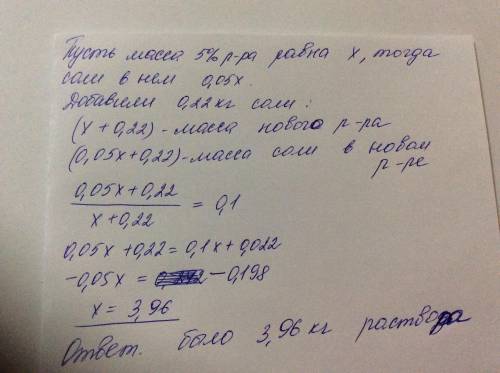 Пусть масса 5% р-ра равна x, тогда
соли в нем 0,05x.
Добавили 0,22 кг соли:
(x + 0,22) - масса нового р-ра
(0,05x + 0,22) - масса соли в новом
р-ре
0,05x + 0,22
x + 0,22
= 0,1
0,05x + 0,22 = 0,1x + 0,022
-0,05x = -0,198
x = 3,96
Ответ. было 3,96 кг раствора